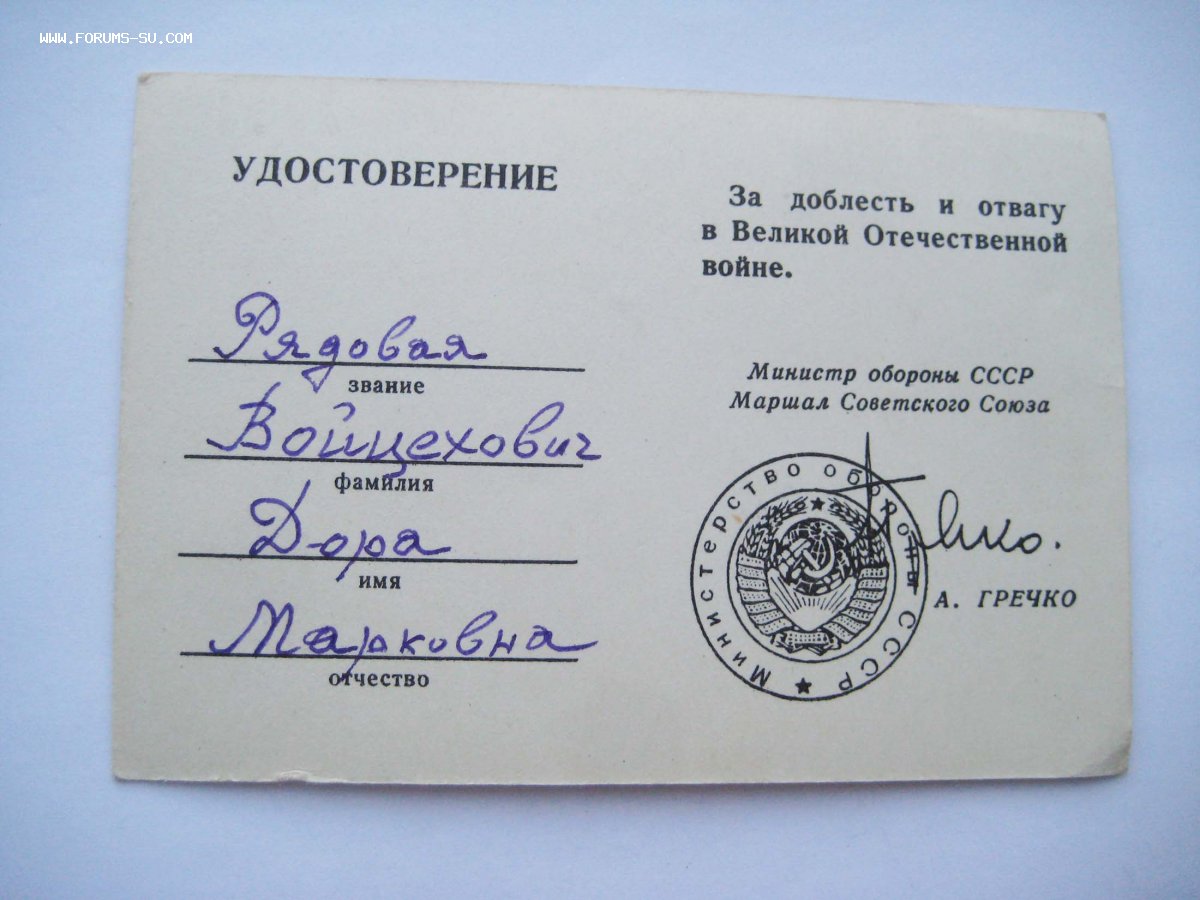 WWW.FORUMS-SU.COM
УДОСТОВЕРЕНИЕ
Рядовая
звание
Войцехович
фамилия
Дора
имя
Марковна
отчество
За доблесть и отвагу
в Великой Отечественной
войне.
Министр обороны СССР
Маршал Советского Союза
Министерство обороны СССР
А. ГРЕЧКО